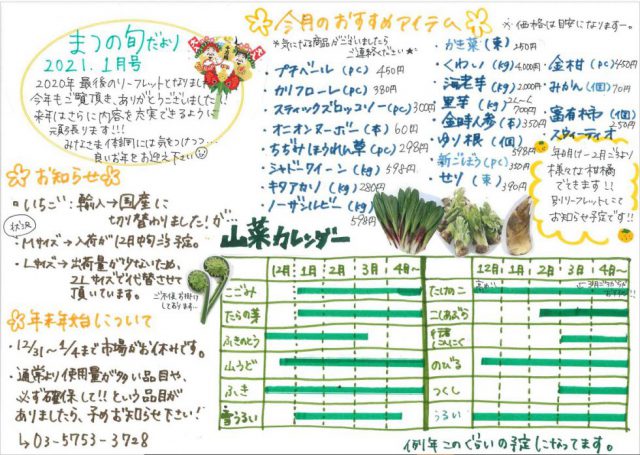 まつの旬だより
2021.1月号
2020年最後のリーフレットとなりました
今年もご覧頂き、ありがとうございました!!
来年はさらに内容を充実できるように
頑張ります!!!
みなさま体調に気をつけつつ…
良いお年をお迎え下さい
お知らせ
・いちご：輸入→国産に
切り替わりました!が…
状況
・Mサイズ→入荷が12月中旬予定。
・Lサイズ→出荷量が少ないため、
2Lサイズで代替させて
頂いています。
ご不便お掛けしております…
年末年始について
・12/31〜1/4まで市場がお休みです。
・通常より使用量が多い品目や、
必ず確保して!!という品目が
ありましたら、予めお知らせ下さい!
↳03-5753-3728
今月のおすすめアイテム
※価格は目安になります〜。
※気になる商品がございましたら
ご連絡ください★
・プチベール (pc) 450円
・カリフローレ (pc) 380円
・スティックブロッコリー(pc) 300円
・オニオンヌーボー (本) 60円
・ちぢみほうれん草 (pc) 298円
・シャドークイーン (kg) 598円
・キタアカリ (kg) 280円
・ノーザンルビー (kg) 598円
・かき菜 (束) 250円
・くわい (kg) 2,000円
・海老芋 (kg) 2,000円
・里芋 (kg) 700円
・金時人参 (本) 350円
・ゆり根 (個)
・新ごぼう (pc) 350円
・せり (束) 390円
・金柑 (pc) 450円
・みかん (個) 70円
・富有柿 (個) 250円
・スウィーティオ
年明け〜2月ごろより
様々な柑橘
でてきます!!
別リーフレットにて
お知らせ予定です!!
山菜カレンダー
12月 1月 2月 3月 4月〜
こごみ
たらの芽
ふきのとう
山うど
ふき
雪うるい
12月 1月 2月 3月 4月〜
たけのこ
こしあぶら
行者にんにく
のびる
つくし
うるい
例年このぐらいの予定になってます。